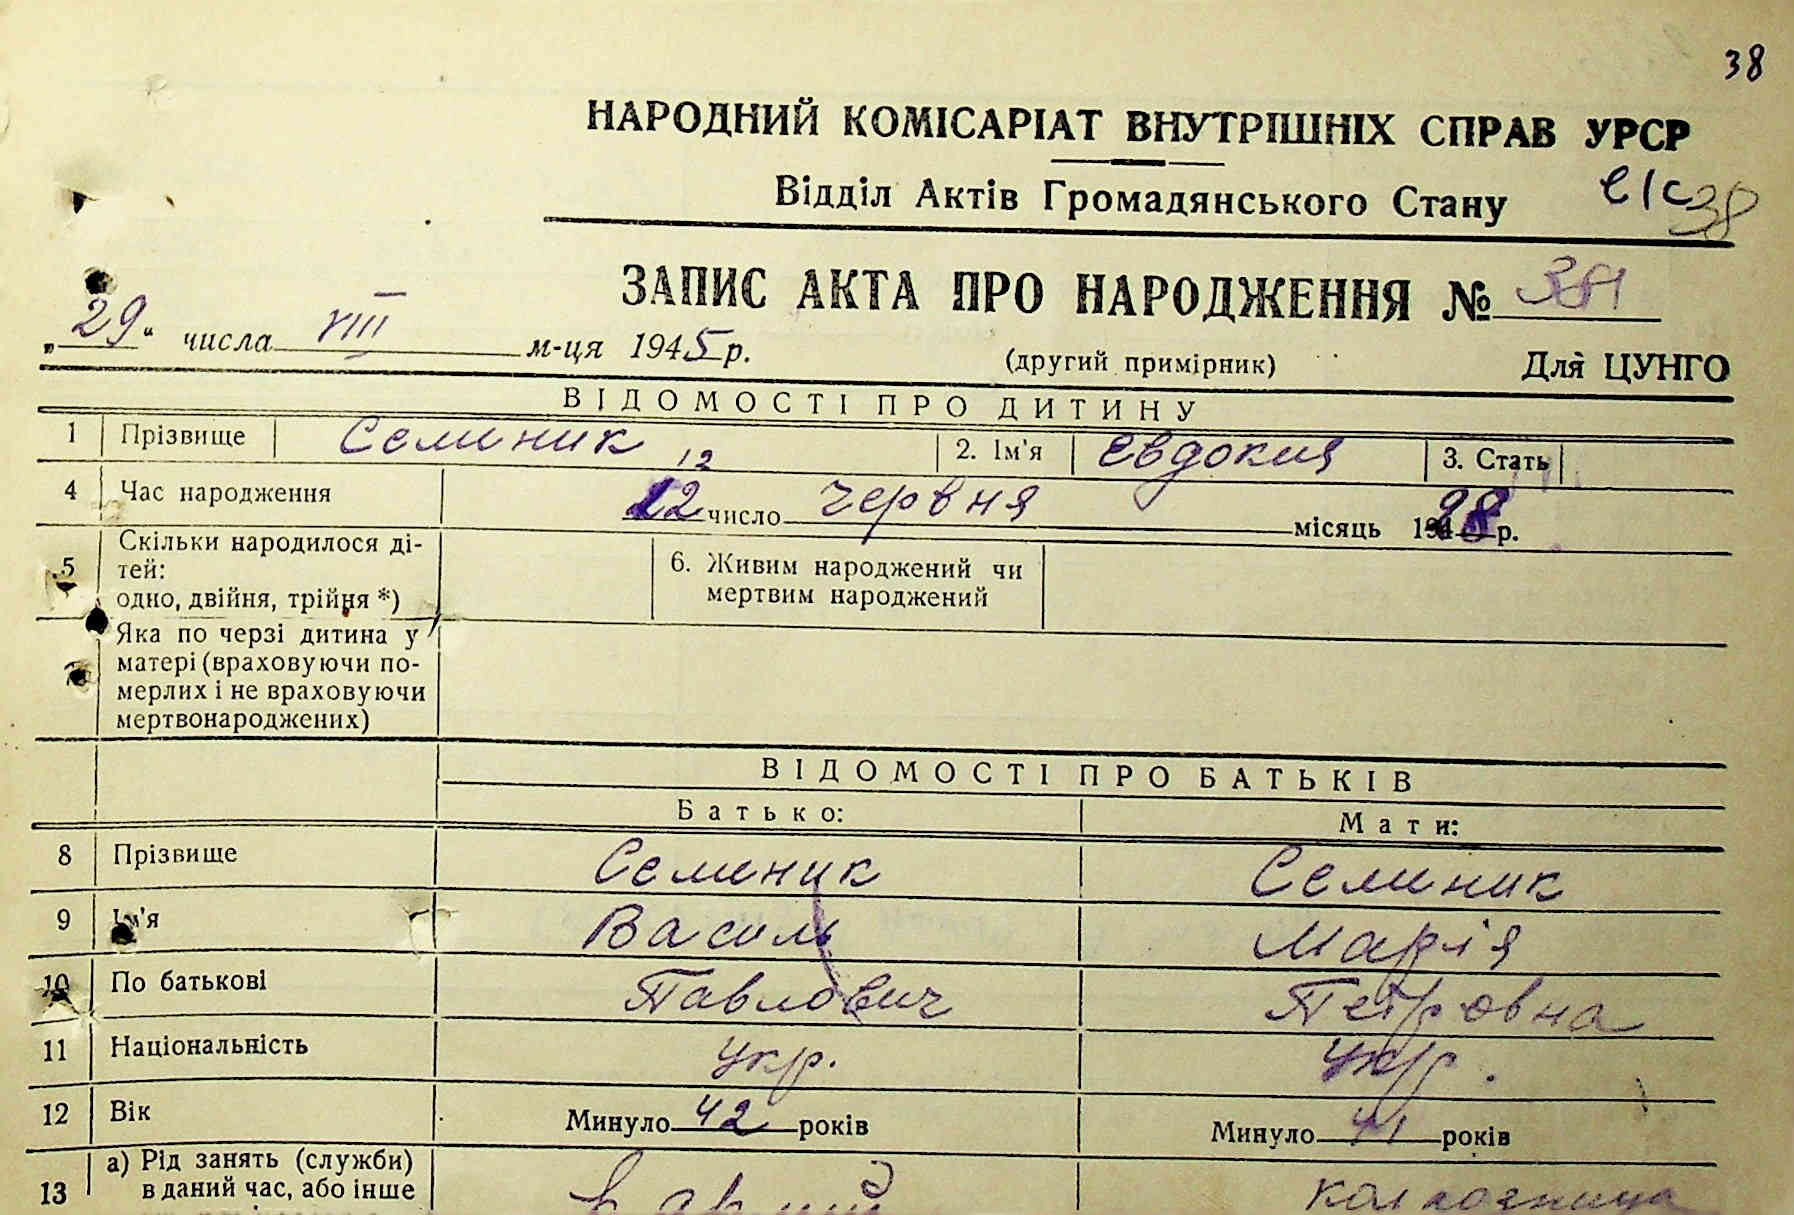 38
НАРОДНИЙ КОМІСАРІАТ ВНУТРІШНІХ СПРАВ УРСР
Відділ Актів Громадянського Стану
38
ЗАПИС АКТА ПРО НАРОДЖЕННЯ №
„29" числа VIII м-ця 1945 р.
(другий примірник) Для ЦУНГО
ВІДОМОСТІ ПРО ДИТИНУ
1 Прізвище Семиник 2. Ім'я Евдокия 3. Стать
12
4 Час народження 12 число червня місяць 1928 р.
5 Скільки народилося ді-
тей:
одно, двійня, трійня *)
6. Живим народжений чи
мертвим народжений
Яка по черзі дитина у
матері (враховуючи по-
мерлих і не враховуючи
мертвонароджених)
ВІДОМОСТІ ПРО БАТЬКІВ
Батько: Мати:
8 Прізвище Семиник Семиник
9 Ім'я Василь Марія
10 По батькові Павлович Петровна
11 Національність укр. укр.
12 Вік Минуло 42 років Минуло 41 років
13 а) Рід занять (служби)
в даний час, або інше
колхозница